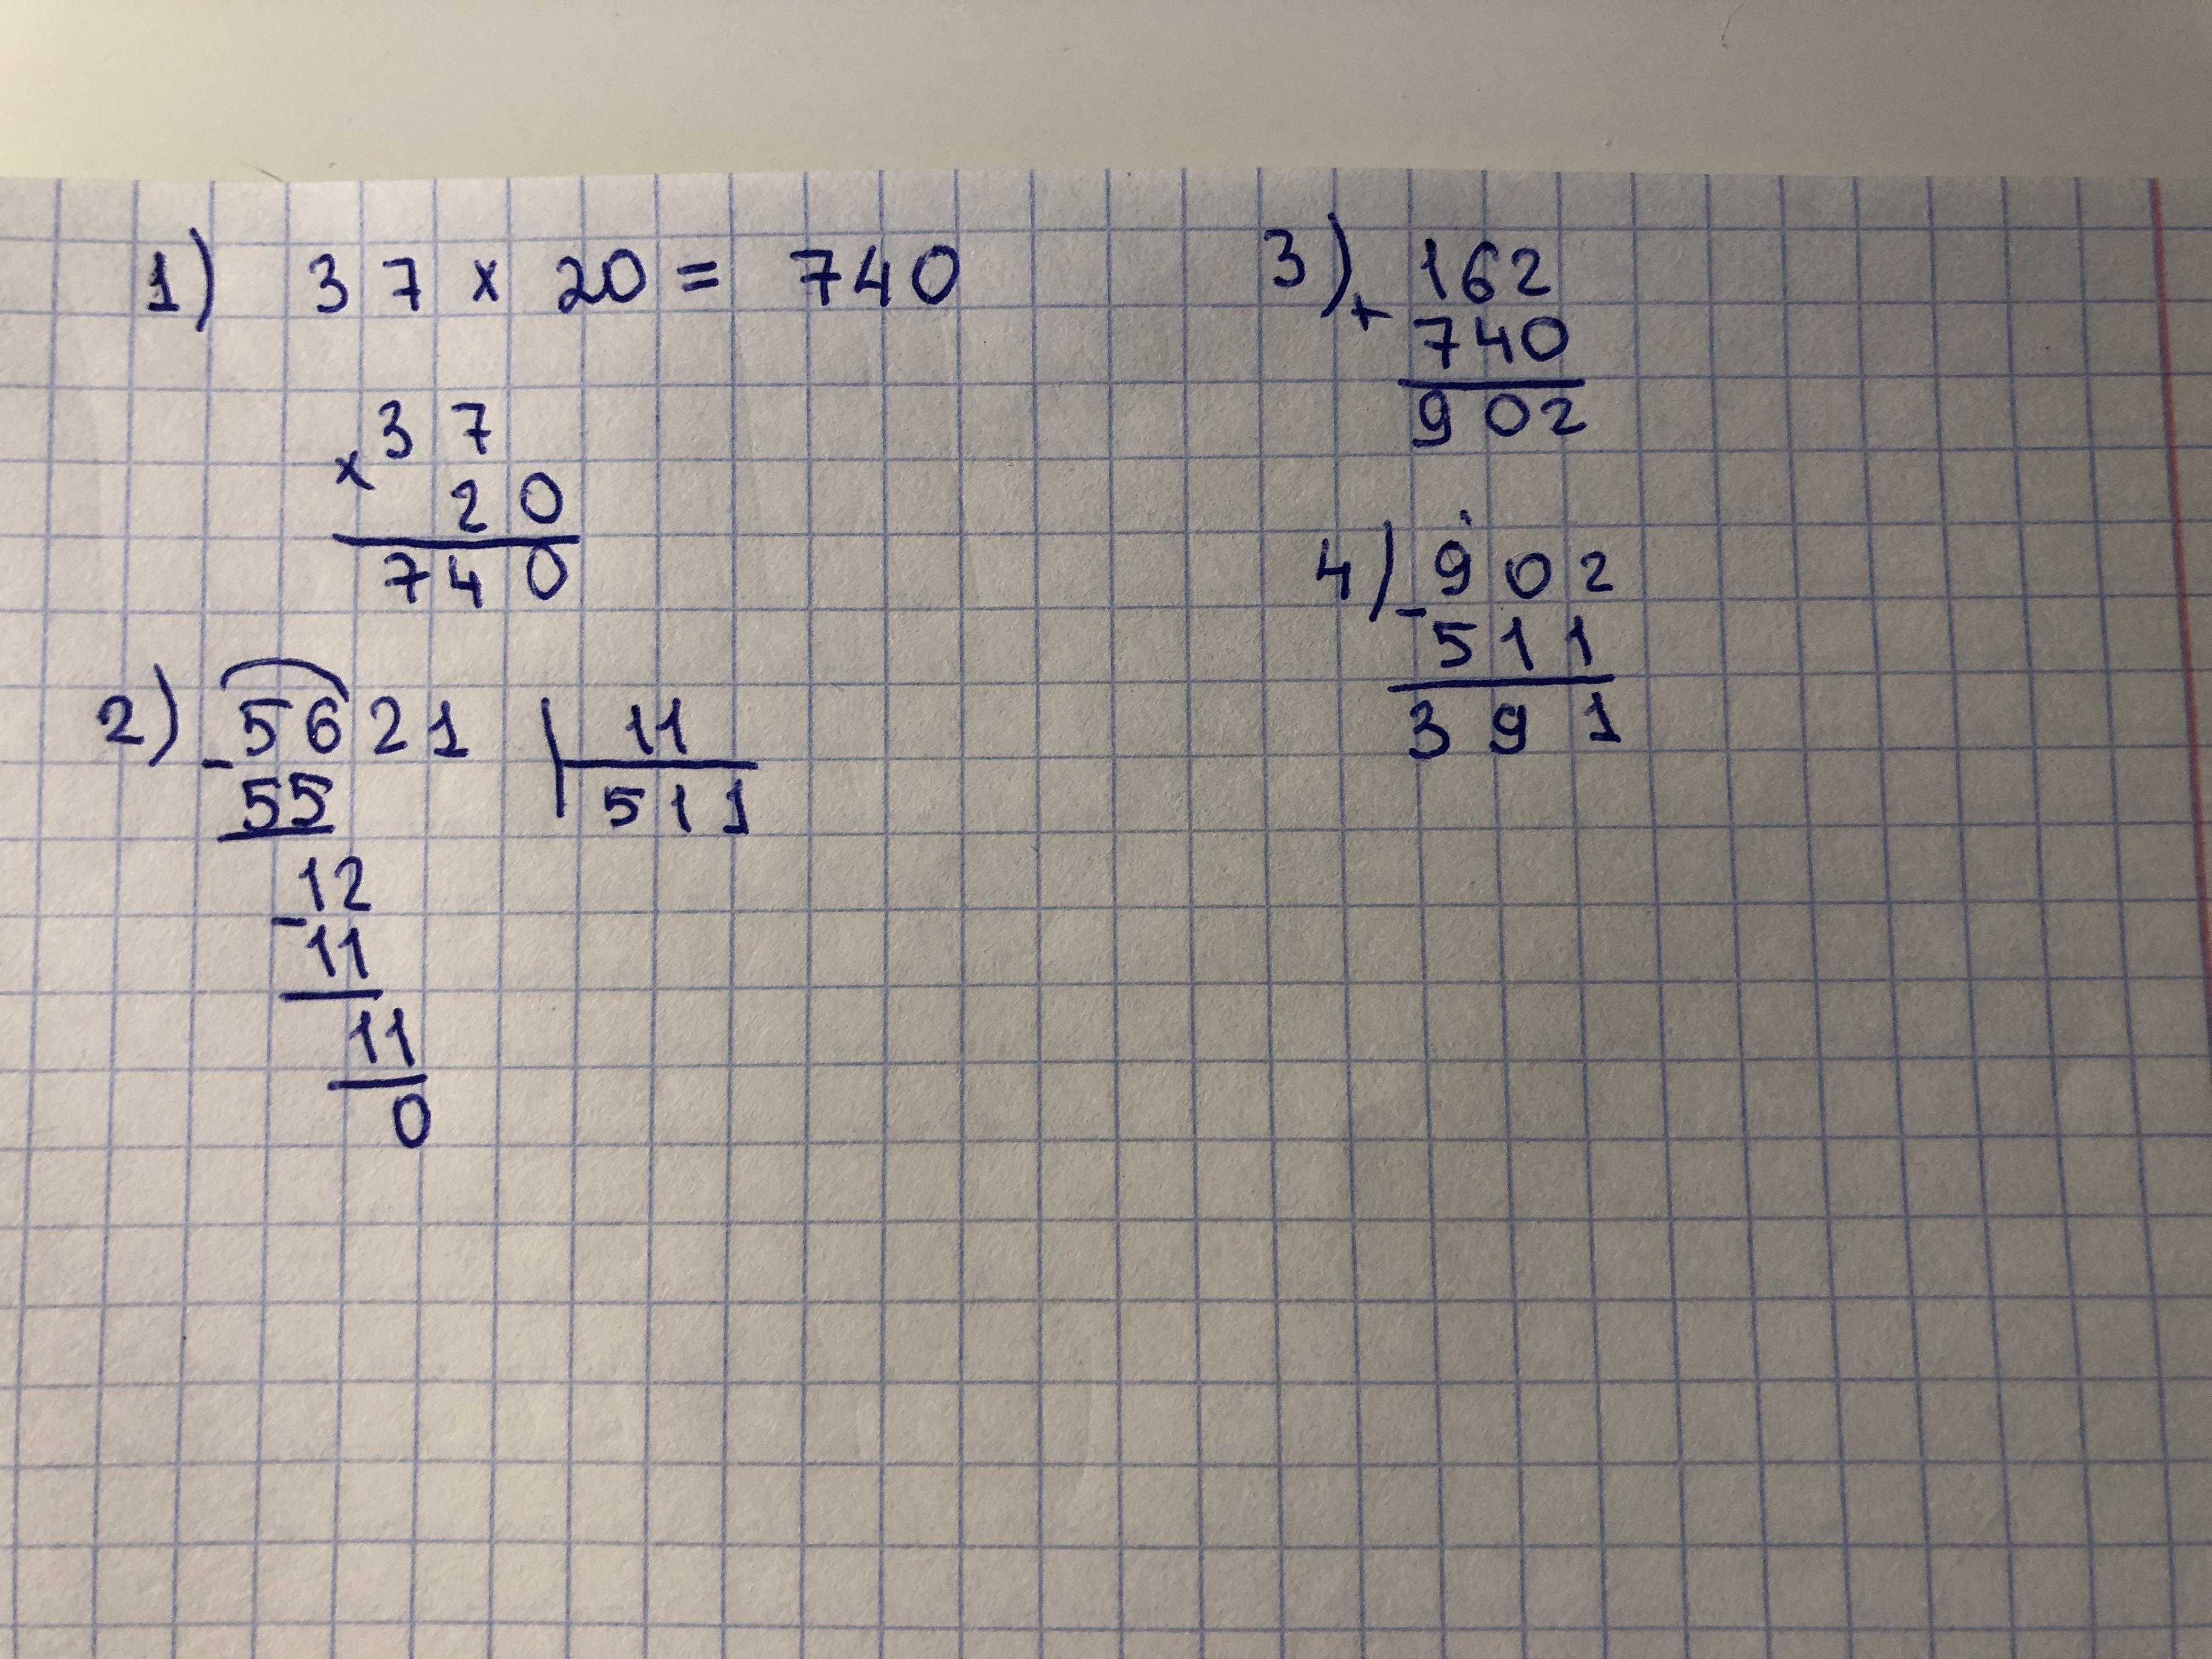 1) 37 x 20 = 740
x 37
20
740
2) - 5621 | 11
55 511
- 12
11
11
0
3) + 162
740
902
4) - 902
511
391